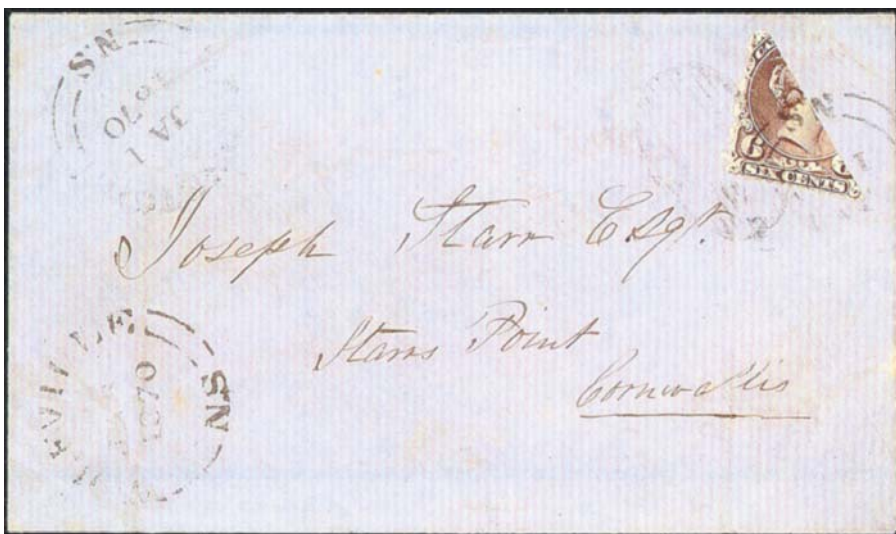 N.S
JA 1
1870
SIX CENTS
6
N.S
Joseph Starr Esqr.
Starrs Point
Cornwallis
VILLE
N.S